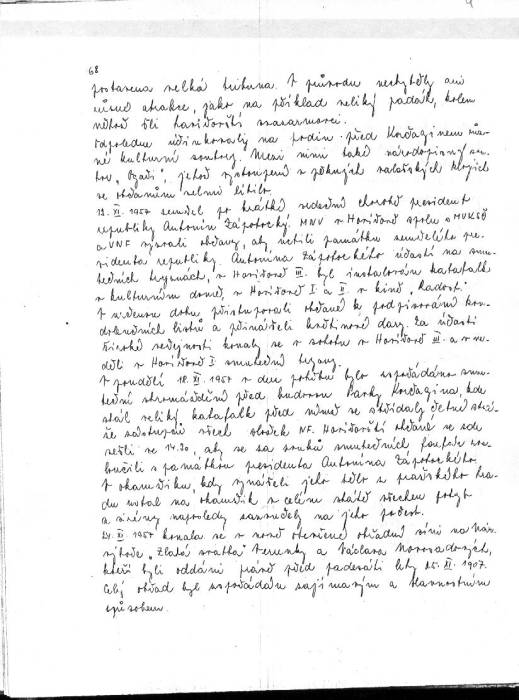 68
postavena velká tribuna. V průvodu nechyběly ani
různé atrakce, jako na příklad veliký padák, kolem
něhož šli havířovští svazarmovci.
Odpoledne účinkovaly na podiu před Korčaginem růz-
né kulturní soubory. Mezi nimi také národopisný sou-
bor, jehož vystoupení v pěkných valašských krojích
se občanům velmi líbilo.
13. XI. 1957 zemřel po krátké srdeční chorobě president
republiky Antonín Zápotocký. MNV v Havířově spolu s MVKSČ
a VNF vyzvali občany, aby uctili památku zemřelého pre-
sidenta republiky Antonína Zápotockého účastí na smu-
tečních tryznách, v Havířově III. byl instalován katafalk
v kulturním domě, v Havířově I. a II. v kině "Radost."
V určenou dobu přistupovali občané k podpisování kon-
dolenčních listů a přinášeli květinové dary. Za účasti
široké veřejnosti konaly se v sobotu v Havířově III. a v ne-
děli v Havířově I. smuteční tryzny.
V pondělí 18. XI. 1957 v den pohřbu bylo uspořádáno smu-
teční shromáždění před budovou Parky Korčagina, kde
stál veliký katafalk před nímž se střídaly četné strá-
že zástupců všech složek NF. Havířovští občané se zde
sešli ve 14.30, aby se za zvuků smutečních fanfár roz-
loučili s památkou presidenta Antonína Zápotockého.
V okamžiku, kdy vynášeli jeho tělo z pražského hra-
du ustal na okamžik v celém státě všechen pohyb
a sirény naposledy zazvučely na jeho počest.
24. XI. 1957 konala se v nově otevřené obřadní síni na Nár.
výboře "Zlatá svatba" Terunky a Václava Novosadových,
kteří byli oddáni právě před padesáti lety 25. XI. 1907.
Celý obřad byl uspořádán zajímavým a slavnostním
způsobem.